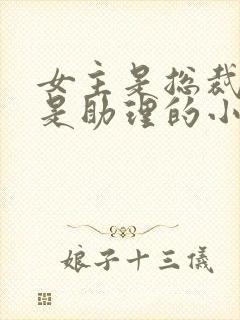 女主是总裁
是助理的小
娘子十三儀